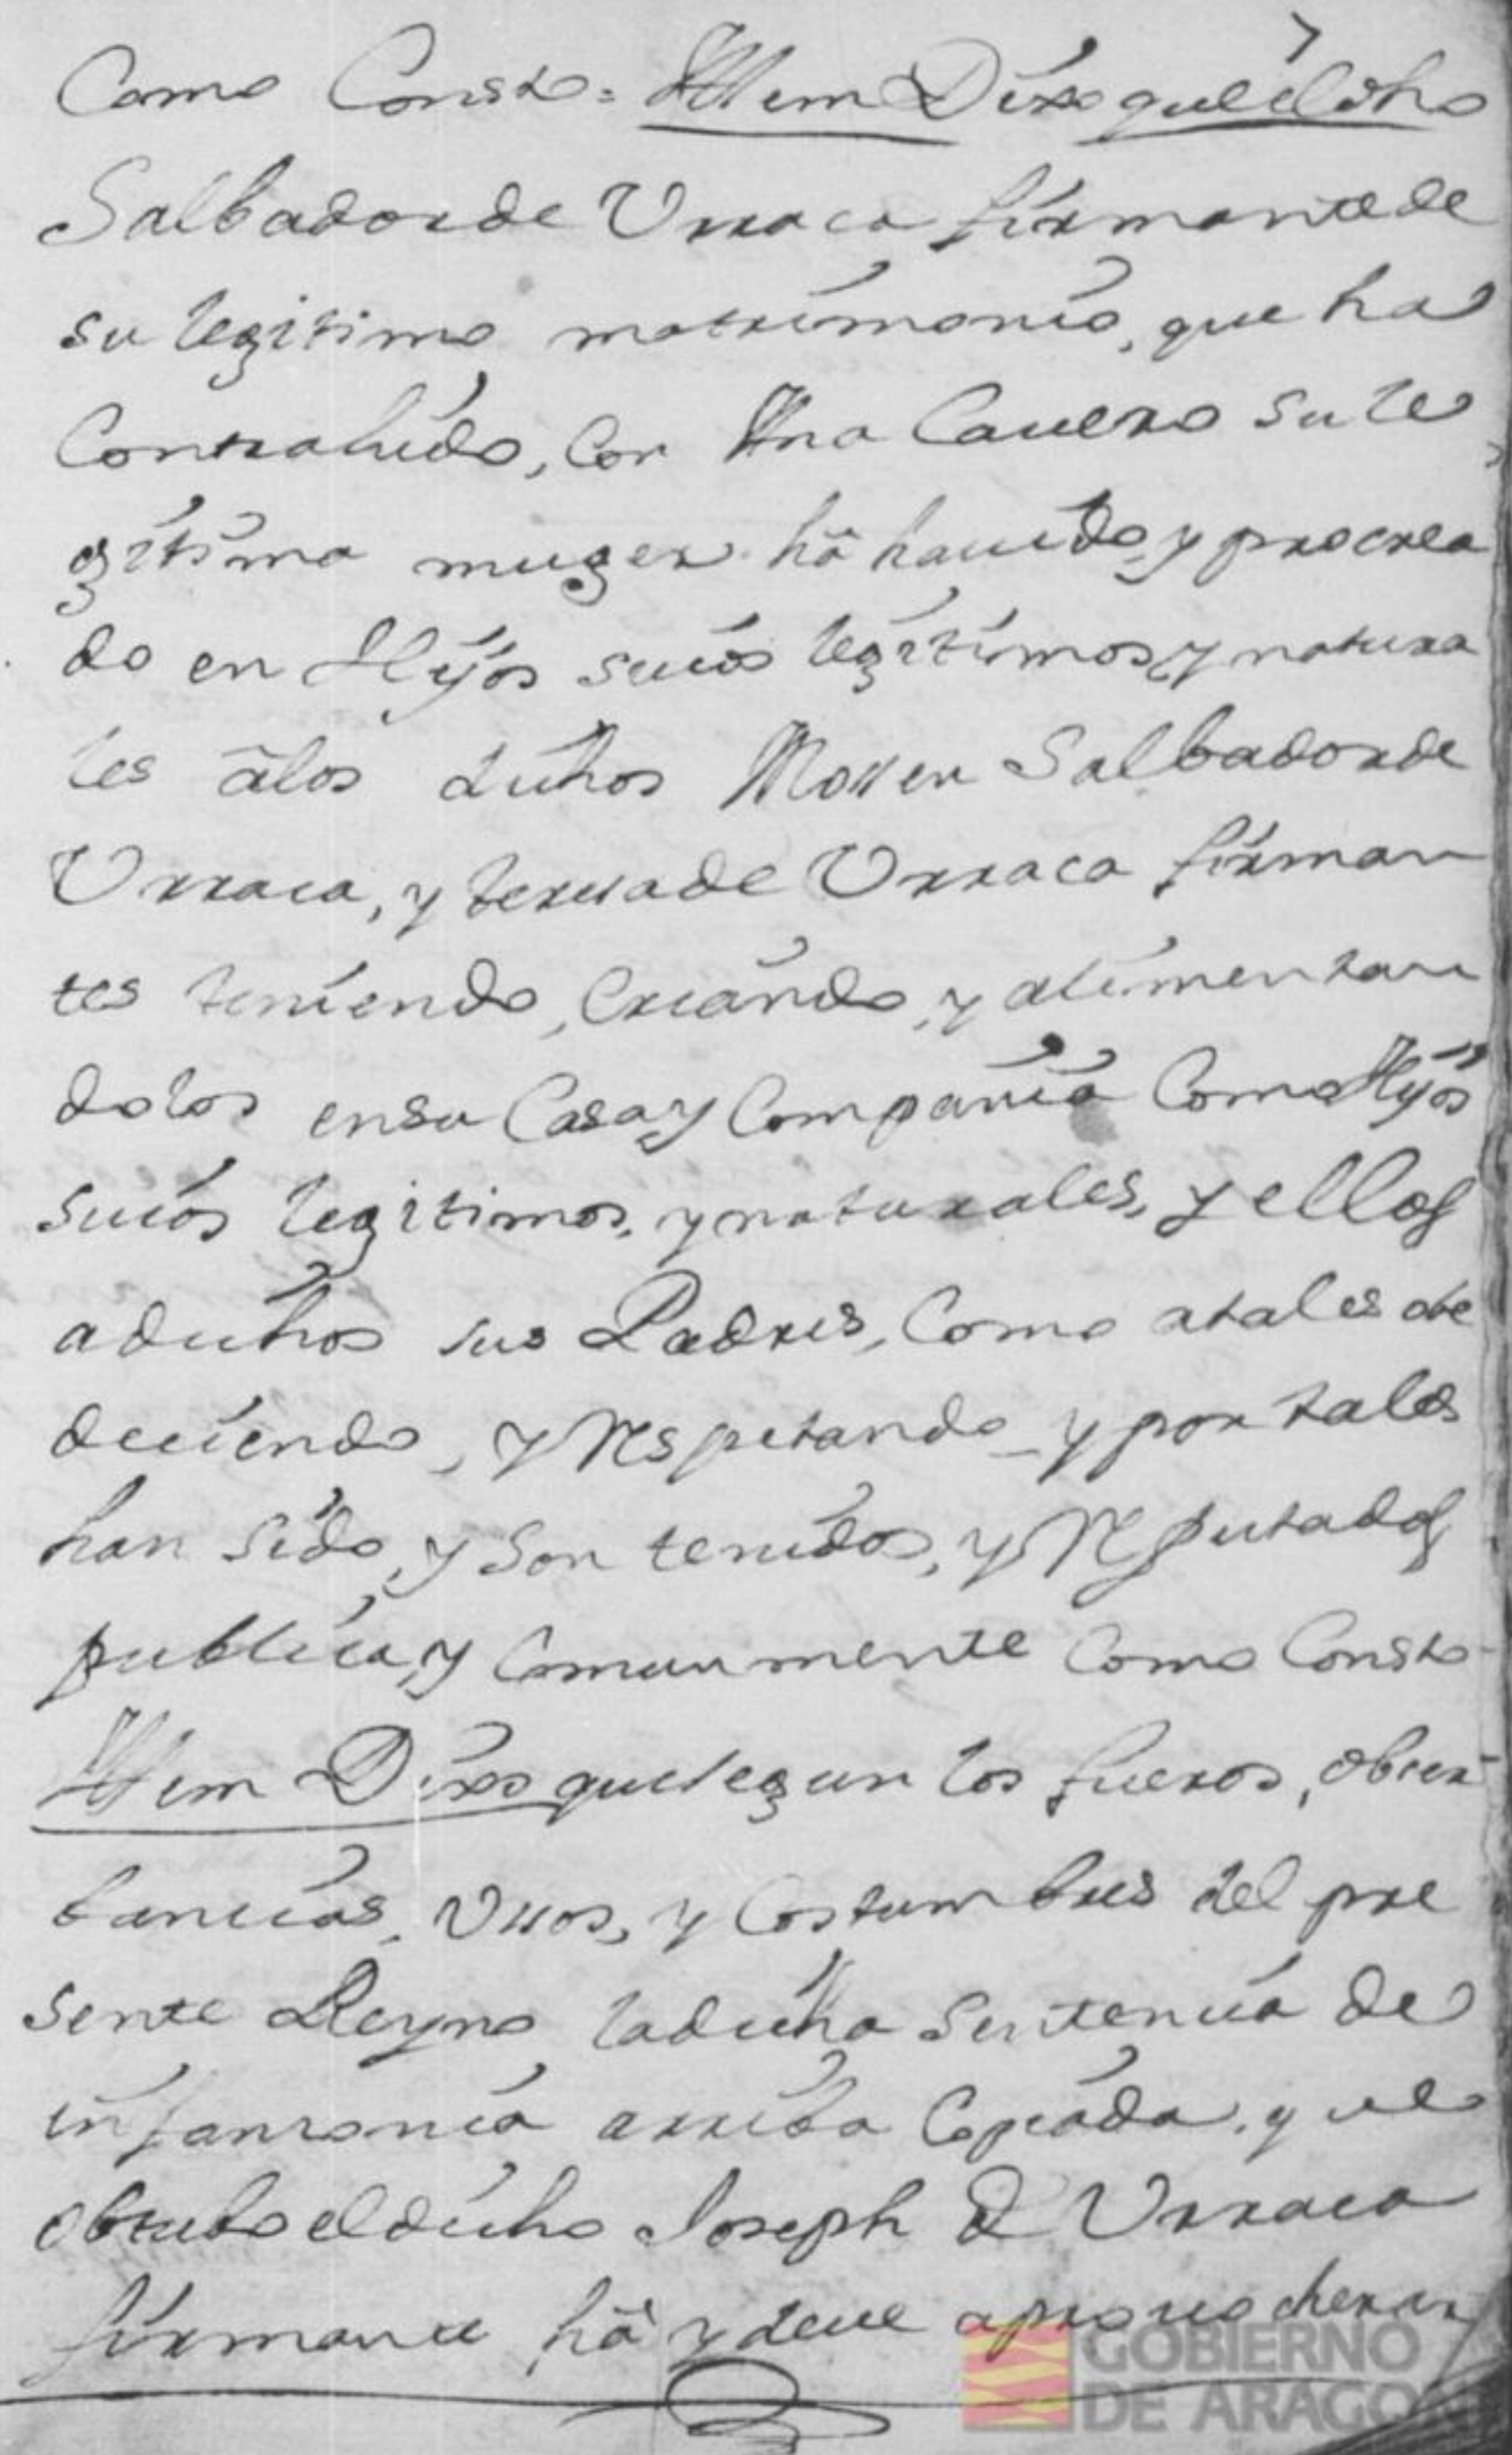 Como Consta = Ittem Dixo que el dho
Salbador de Urraca firmante de
su legitimo matrimonio, que ha
Contrahido, Con Ana Cauero su le
gitima muger hâ hauido, y procrea
do en Hijos suios legitimos, y natura
les âlos dichos Mossen Salbador de
Urraca, y teresa de Urraca firman
tes teniendo, Criando, y alimentan
dolos en su Casa, y Compania Como Hijos
suios legitimos, y naturales, y ellos
a dichos sus Padres, Como atales obe
deciendo, y Respetando y por tales
han sido, y son tenidos, y Reputados
publica, y Comunmente Como Consta
Ittem Dixo que segun los fueros, obser
bancias, Ussos, y Costumbres del pre
sente Reyno la dicha Sentencia de
infanzonia arriba Copiada, que
obtubo el dicho Joseph D Urraca
firmante hâ y deue aprouechar
GOBIERNO
DE ARAGON